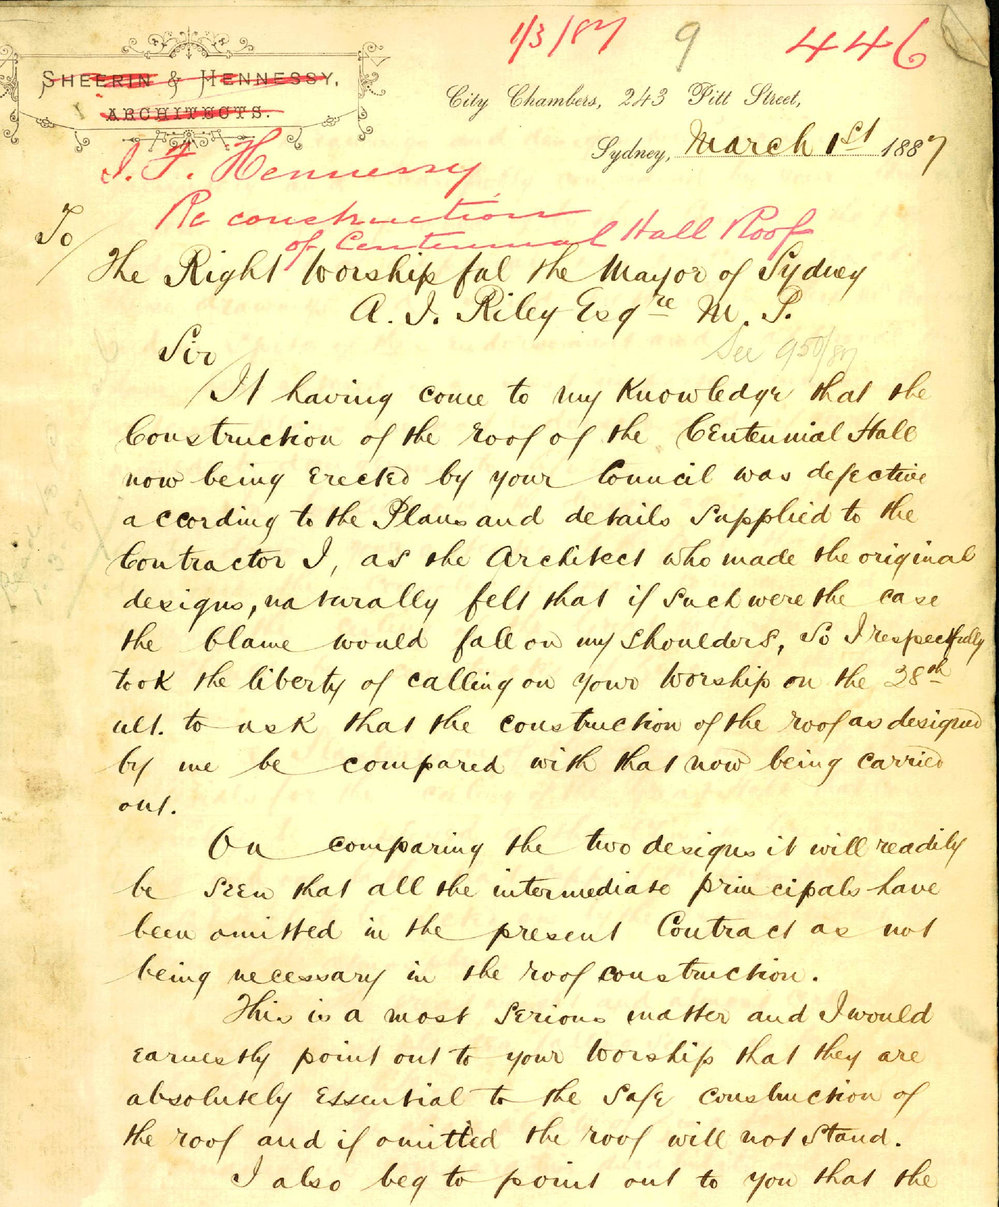 1/3/87 9 446
SHEERIN & HENNESSY,
ARCHITECTS.
City Chambers, 243 Pitt Street,
Sydney, March 1st 1887
J. F. Hennessy
Re construction
of Centennial Hall Roof
To/
The Right Worshipful the Mayor of Sydney
A. J. Riley Esqre M. P.
Sir
See 950/87
It having come to my Knowledge that the
Construction of the roof of the Centennial Hall
now being Erected by your Council was defective
according to the Plans and details supplied to the
Contractor I, as the Architect who made the original
designs, naturally felt that if such were the case
the blame would fall on my shoulders, So I respectfully
took the liberty of calling on your Worship on the 28th
ult. to ask that the construction of the roof as designed
by me be compared with that now being carried
out.
On comparing the two designs it will readily
be seen that all the intermediate principals have
been omitted in the present Contract as not
being necessary in the roof construction.
This is a most serious matter and I would
earnestly point out to your Worship that they are
absolutely Essential to the safe construction of
the roof and if omitted the roof will not stand.
I also beg to point out to you that the